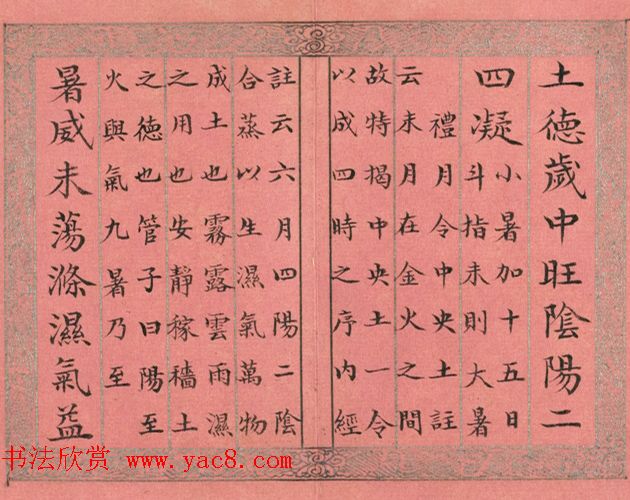 土德歲中旺陰陽二
四凝
小暑加十五日
斗指未則大暑
禮月令中央土註
云未月在金火之間
故特揭中央土一令
以成四時之序內經
註云六月四陽二陰
合蒸以生濕氣萬物
成土也霧露雲雨濕
之用也安靜稼穡土
之德也管子曰陽至
火與氣九暑乃至
暑威未蕩滌濕氣益
书法欣赏 www.yac8.com